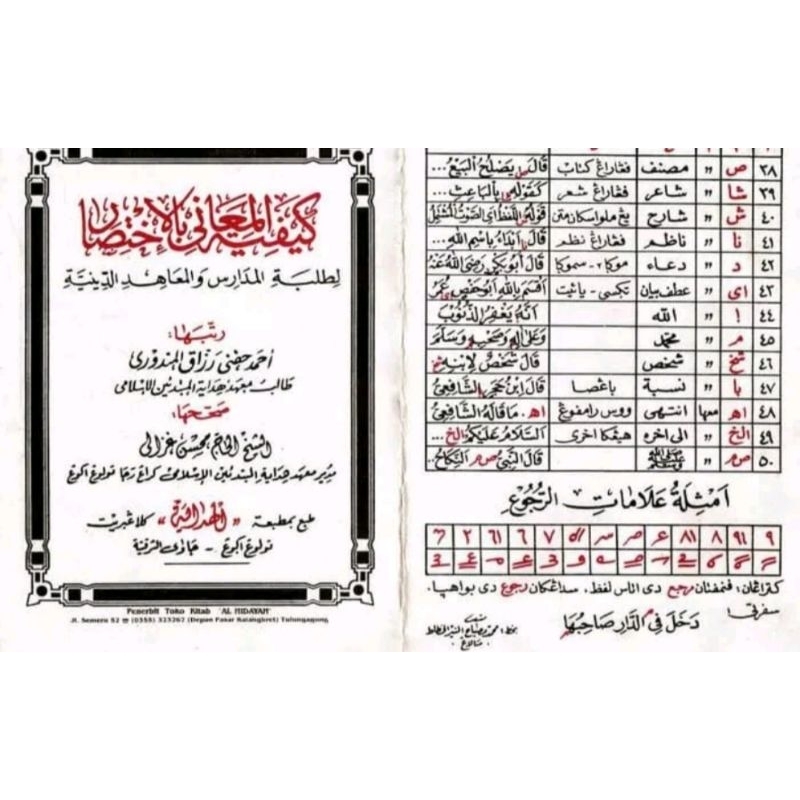 كيفية المعاني بالإختصار
لطلبة المدارس والمعاهد الدينية
رتبها:
أحمد حفني رزاق المندوري
طالب معهد هداية المبتدئين الإسلامي
صححها:
الشيخ الحاج محسن غزالي
مدير معهد هداية المبتدئين الإسلامي كراغ رجا تولوغ اكوغ
طبع بمطبعة "الهداية" كلاغبريت
تولوغ اكوغ - جاوى الشرقية
Penerbit Toko Kitab "AL HIDAYAH"
Jl. Semeru 52 ☎ (0355) 323267 (Depan Pasar Ngalangbret) Tulungagung
٣٨ ص " مصنف فڠاراڠ كتاب قال يصلح البيع...
٣٩ شا " شاعر فڠاراڠ شعر كقوله بالباعث...
٤٠ ش " شارح
٤١ نا " ناظم فڠاراڠ نظم قال أبداء باسم الله...
٤٢ د " دعاء موكا٢-سموكا قال أبو بكر رضى الله عنه
٤٣ اى " عطف بيان تكسى-يائيت أقسم بالله أبو حفص عمر
٤٤ ا " الله أنه يغفر الذنوب
٤٥ م " محمد وعلى آله وصحبه وسلم
٤٦ شخ " شخص قال شخص لابنه
٤٧ با " نسبة باڠصا قال ابن حجر الشافعي
٤٨ اه معها انتهى ووس رامفوڠ اه. ما قاله الشافعي
٤٩ الخ " الى اخره هيڠكا اخرى السلام عليكم الخ...
٥٠ صم " ﷺ قال النبي صم النكاح...
أمثلة علامات الرجوع
كتراڠان: فنمفتان مرجع دى اتاس لفظ، سداڠكان رجوع دى بواهڽا.
سفرتى: دخل في الدار صاحبها